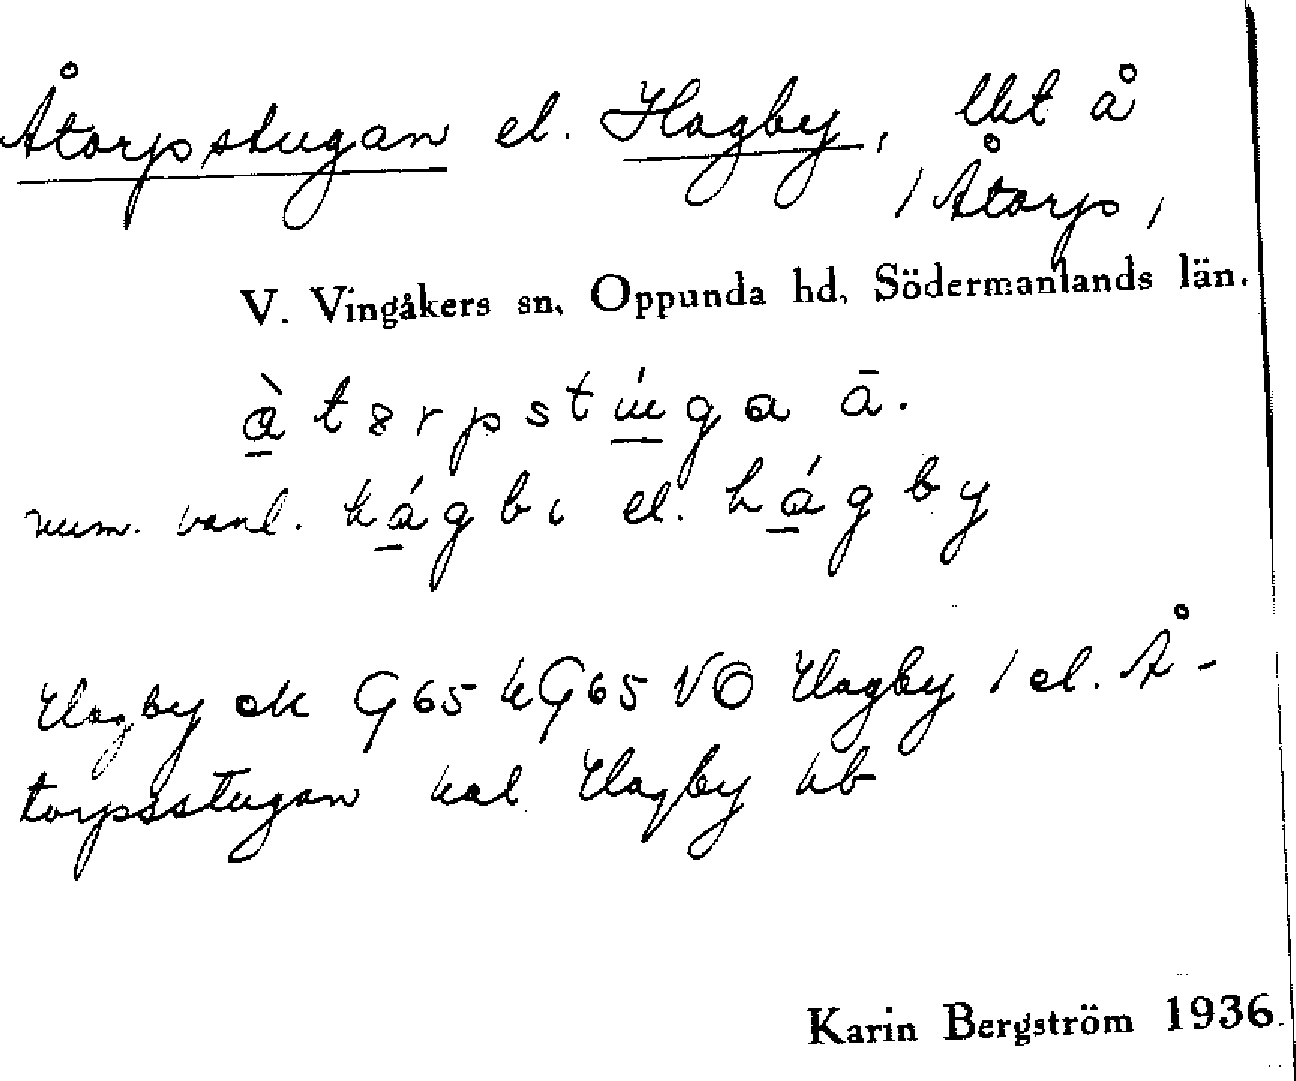 Åtorpsstugan el. Hagby, lht å
/ Åtorp /
V. Vingåkers sn, Oppunda hd, Södermanlands län.
å̀ t ɤ r p s t ú g a ā.
num. vanl. hágbi el. hágby
Hagby ek G65 hG65 VO Hagby / el. Å-
torpsstugan kal Hagby hb
Karin Bergström 1936.